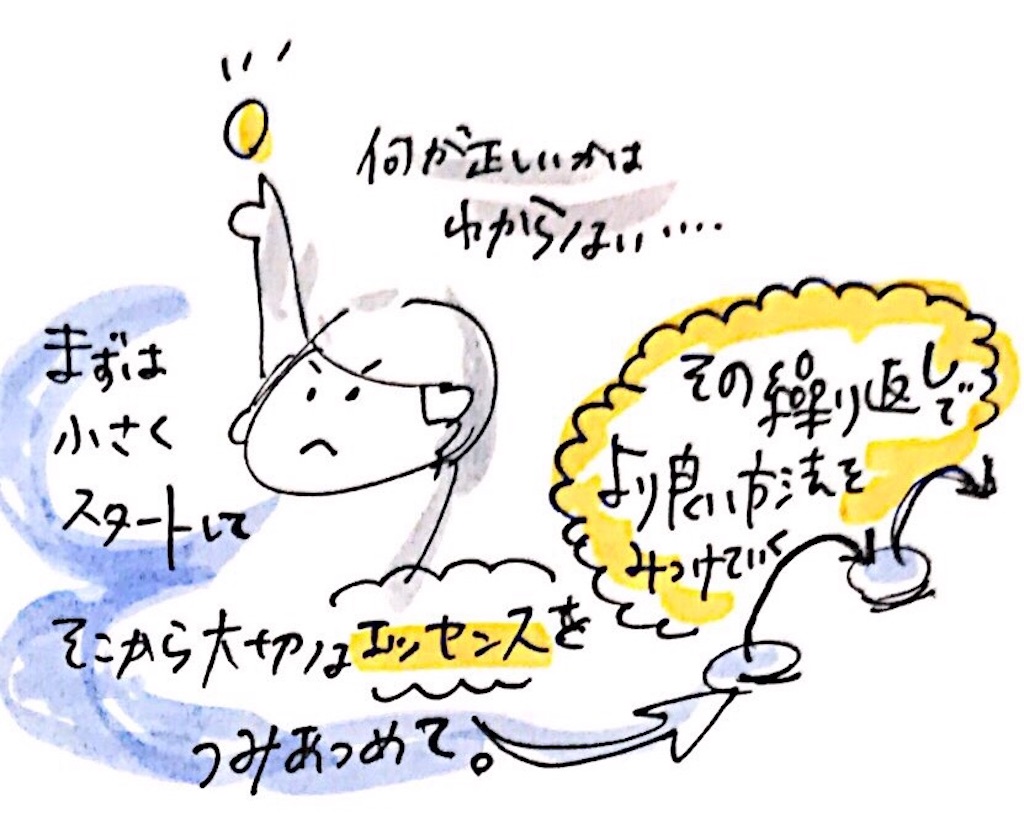 何が正しいかは
わからない‥‥
まずは
小さく
スタートして
そこから大切なエッセンスを
つみあつめて。
その繰り返しで
より良い方法を
みつけていく